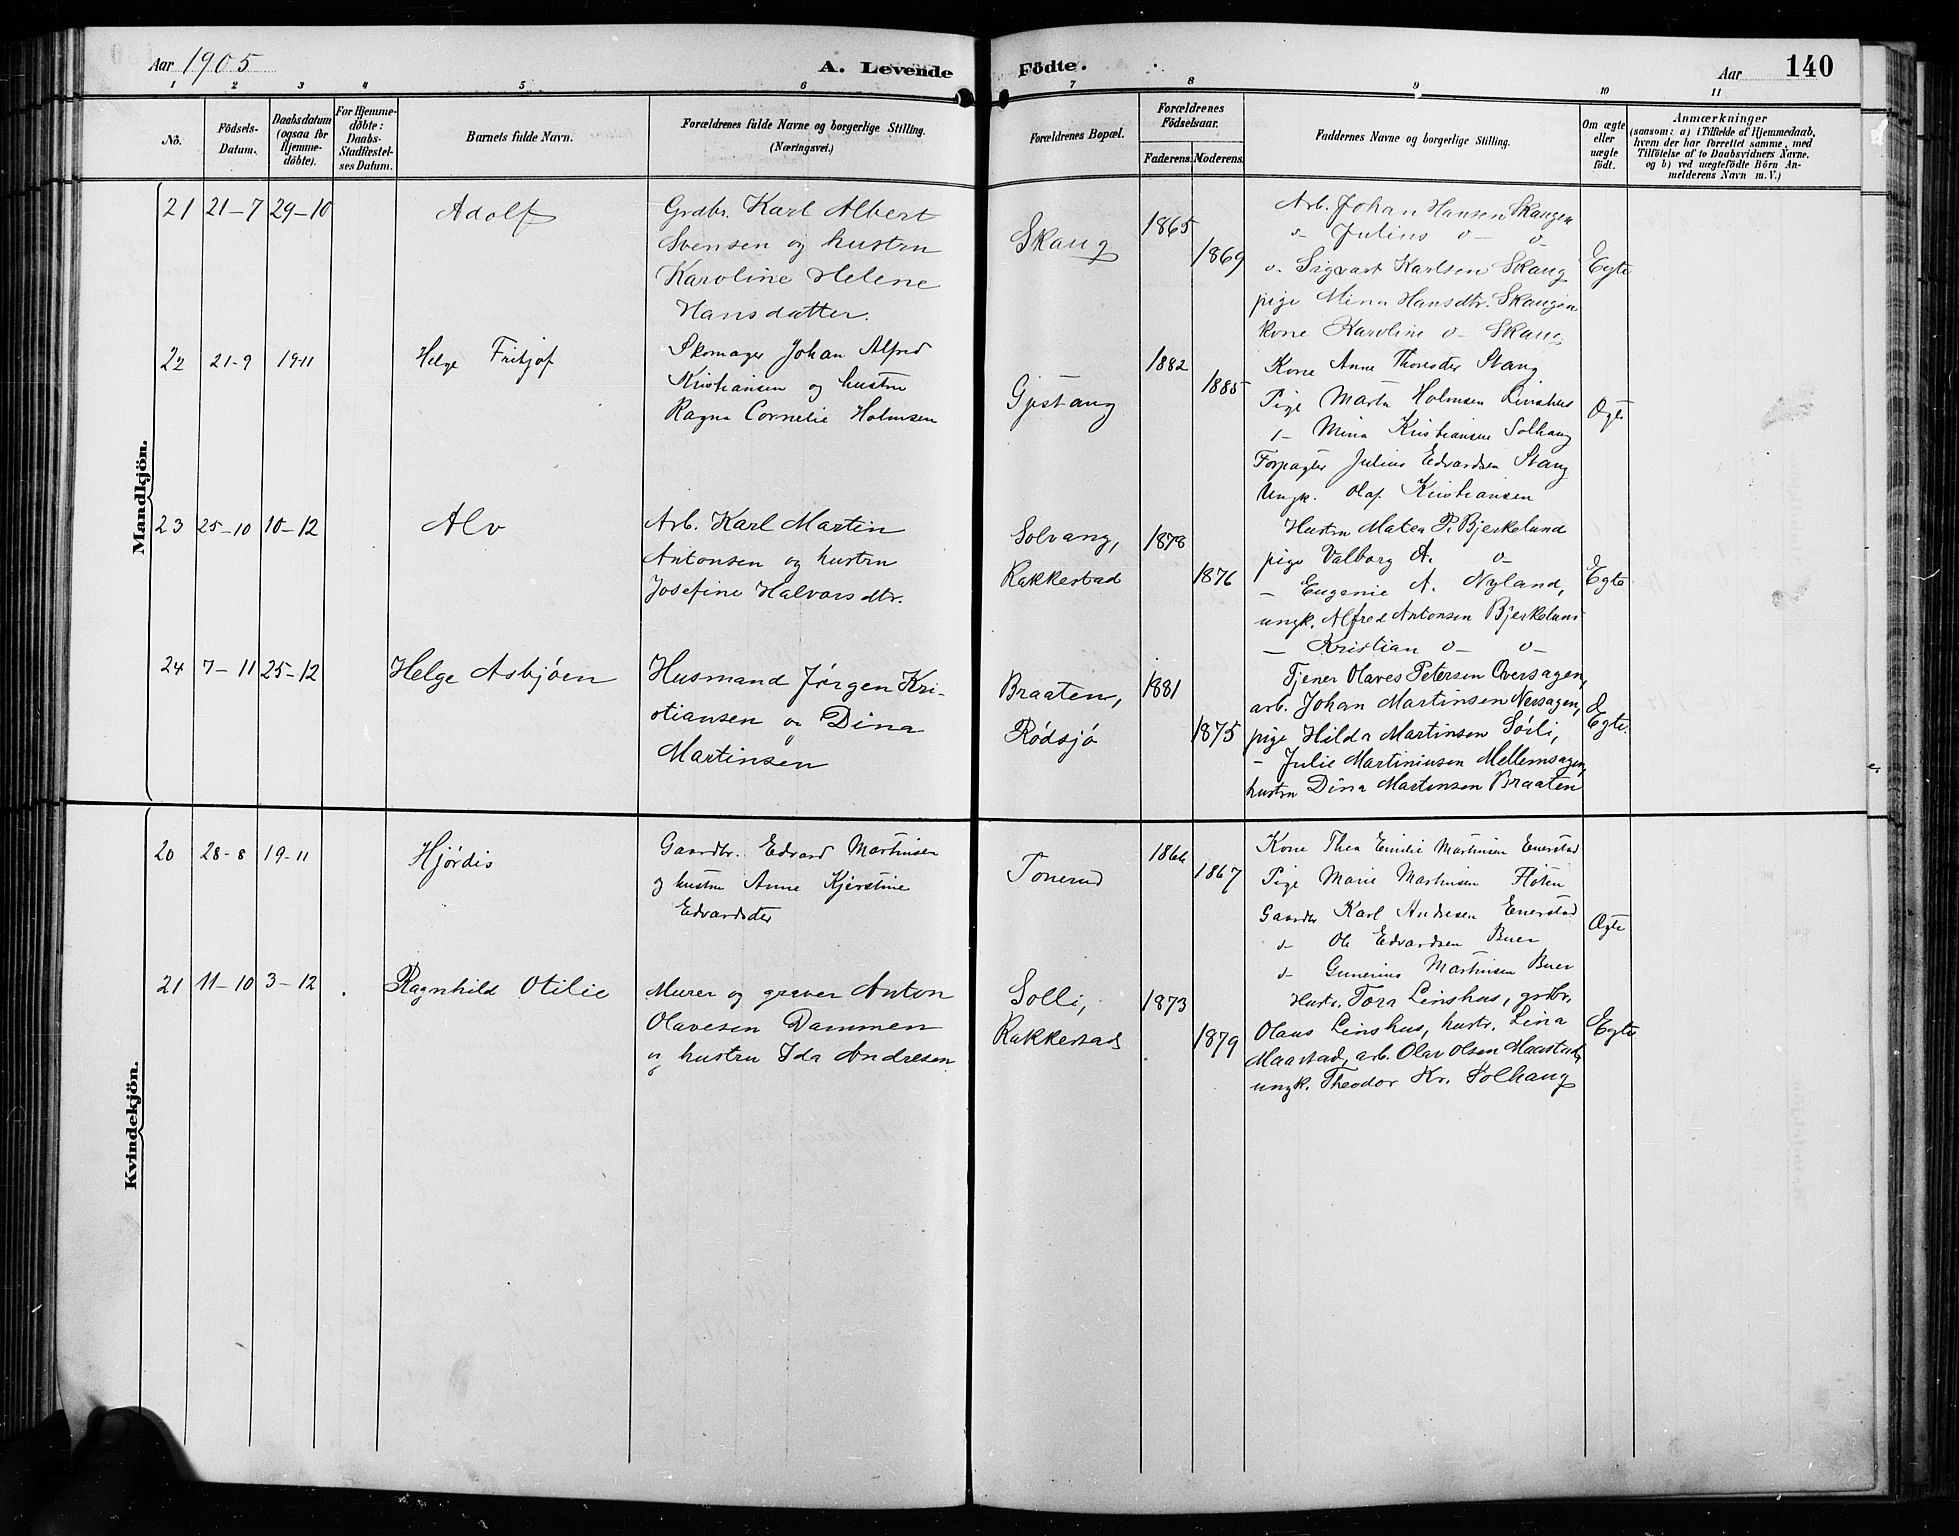 Aar 1905
A. Levende Födte.
Aar 140
1 2 3 4 5 6 7 8 9 10 11
No.
Födsels-Datum.
Daabsdatum (ogsaa for Hjemme-döbte).
For Hjemme-döbte: Daabs-Stadfæstel-ses Datum.
Barnets fulde Navn.
Forældrenes fulde Navne og borgerlige Stilling. (Næringsvei.)
Forældrenes Bopæl.
Forældrenes Födselsaar.
Faderens. Moderens.
Faddernes Navne og borgerlige Stilling.
Om ægte eller uægte födt.
Anmærkninger
(saasom: a) i Tilfælde af Hjemmedaab,
hvem der har forrettet samme, med
Tilföielse af to Daabsvidners Navne,
og b) ved uægtefödte Börn An-
melderens Navn m. V.)
Mandkjön.
21 21-7 29-10 Adolf
Grdbr. Karl Albert
Svensen og hustru
Karoline Helene
Hansdatter.
Skaug
1865
1869
Arb. Johan Hansen Skaugen
v- Julius v- v-
v. Sigvart Karlsen Skaug
pige Mina Hansdtr. Skaugen
kone Karoline v- Skaug
Egte
22 21-9 19-11 Helge Frithjof
Skomager Johan Alfred
Kristiansen og hustru
Ragna Cornelie Holmsen
Gjestang
1882
1885
Kone Anne Thoresdtr Stang
Pige Marta Holmsen Linshus
- Mina Kristiansen Solhaug
Forpagter Julius Edvardsen Stang
Ungk. Olaf Kristiansen
Ægte
23 25-10 10-12 Alv
Arb. Karl Martin
Antonsen og hustru
Josefine Halvorsdtr.
Solvang,
Rakkestad
1878
1876
Hustru Matea P. Bjerkelund
pige Valborg A. v-
- Eugenie A. Nyland,
ungk. Alfred Antonsen Bjerkelund
- Kristian v- v-
Egte
24 7-11 25-12 Helge Asbjøen
Husmand Jørgen Kri-
stiansen og Dina
Martinsen
Braaten,
Rødsjø
1881
1875
Tjener Olaves Petersen Oversagen,
arb. Johan Martinsen Nersagen,
pige Hilda Martinsen Søili,
- Julie Martiniusen Mellemsagen,
hustru Dina Martinsen Braaten
Egte.
Kvindekjön.
20 28-8 19-11 Hjørdis
Gaardbr. Edvard Martinsen
og hustru Anne Kjerstine
Edvardsdtr
Tonerud
1866
1867
Kone Thea Emilie Martinsen Enerstad
Pige Marie Martinsen Fløten
Gaardbr Karl Andresen Enerstad
v- Ole Edvardsen Buer
v- Gunerius Martinsen Buer
Ægte
21 11-10 3-12 Ragnhild Otilie
Murer og graver Anton
Olavesen Dammen
og hustru Ida Andresen
Solli,
Rakkestad
1873
1879
Hustr. Tora Linshus, grdbr.
Olaus Linshus, hustr. Lina
Maarstad, arb. Olav Olsen Maarstad,
ungk. Theodor Kr. Solhaug
Egte